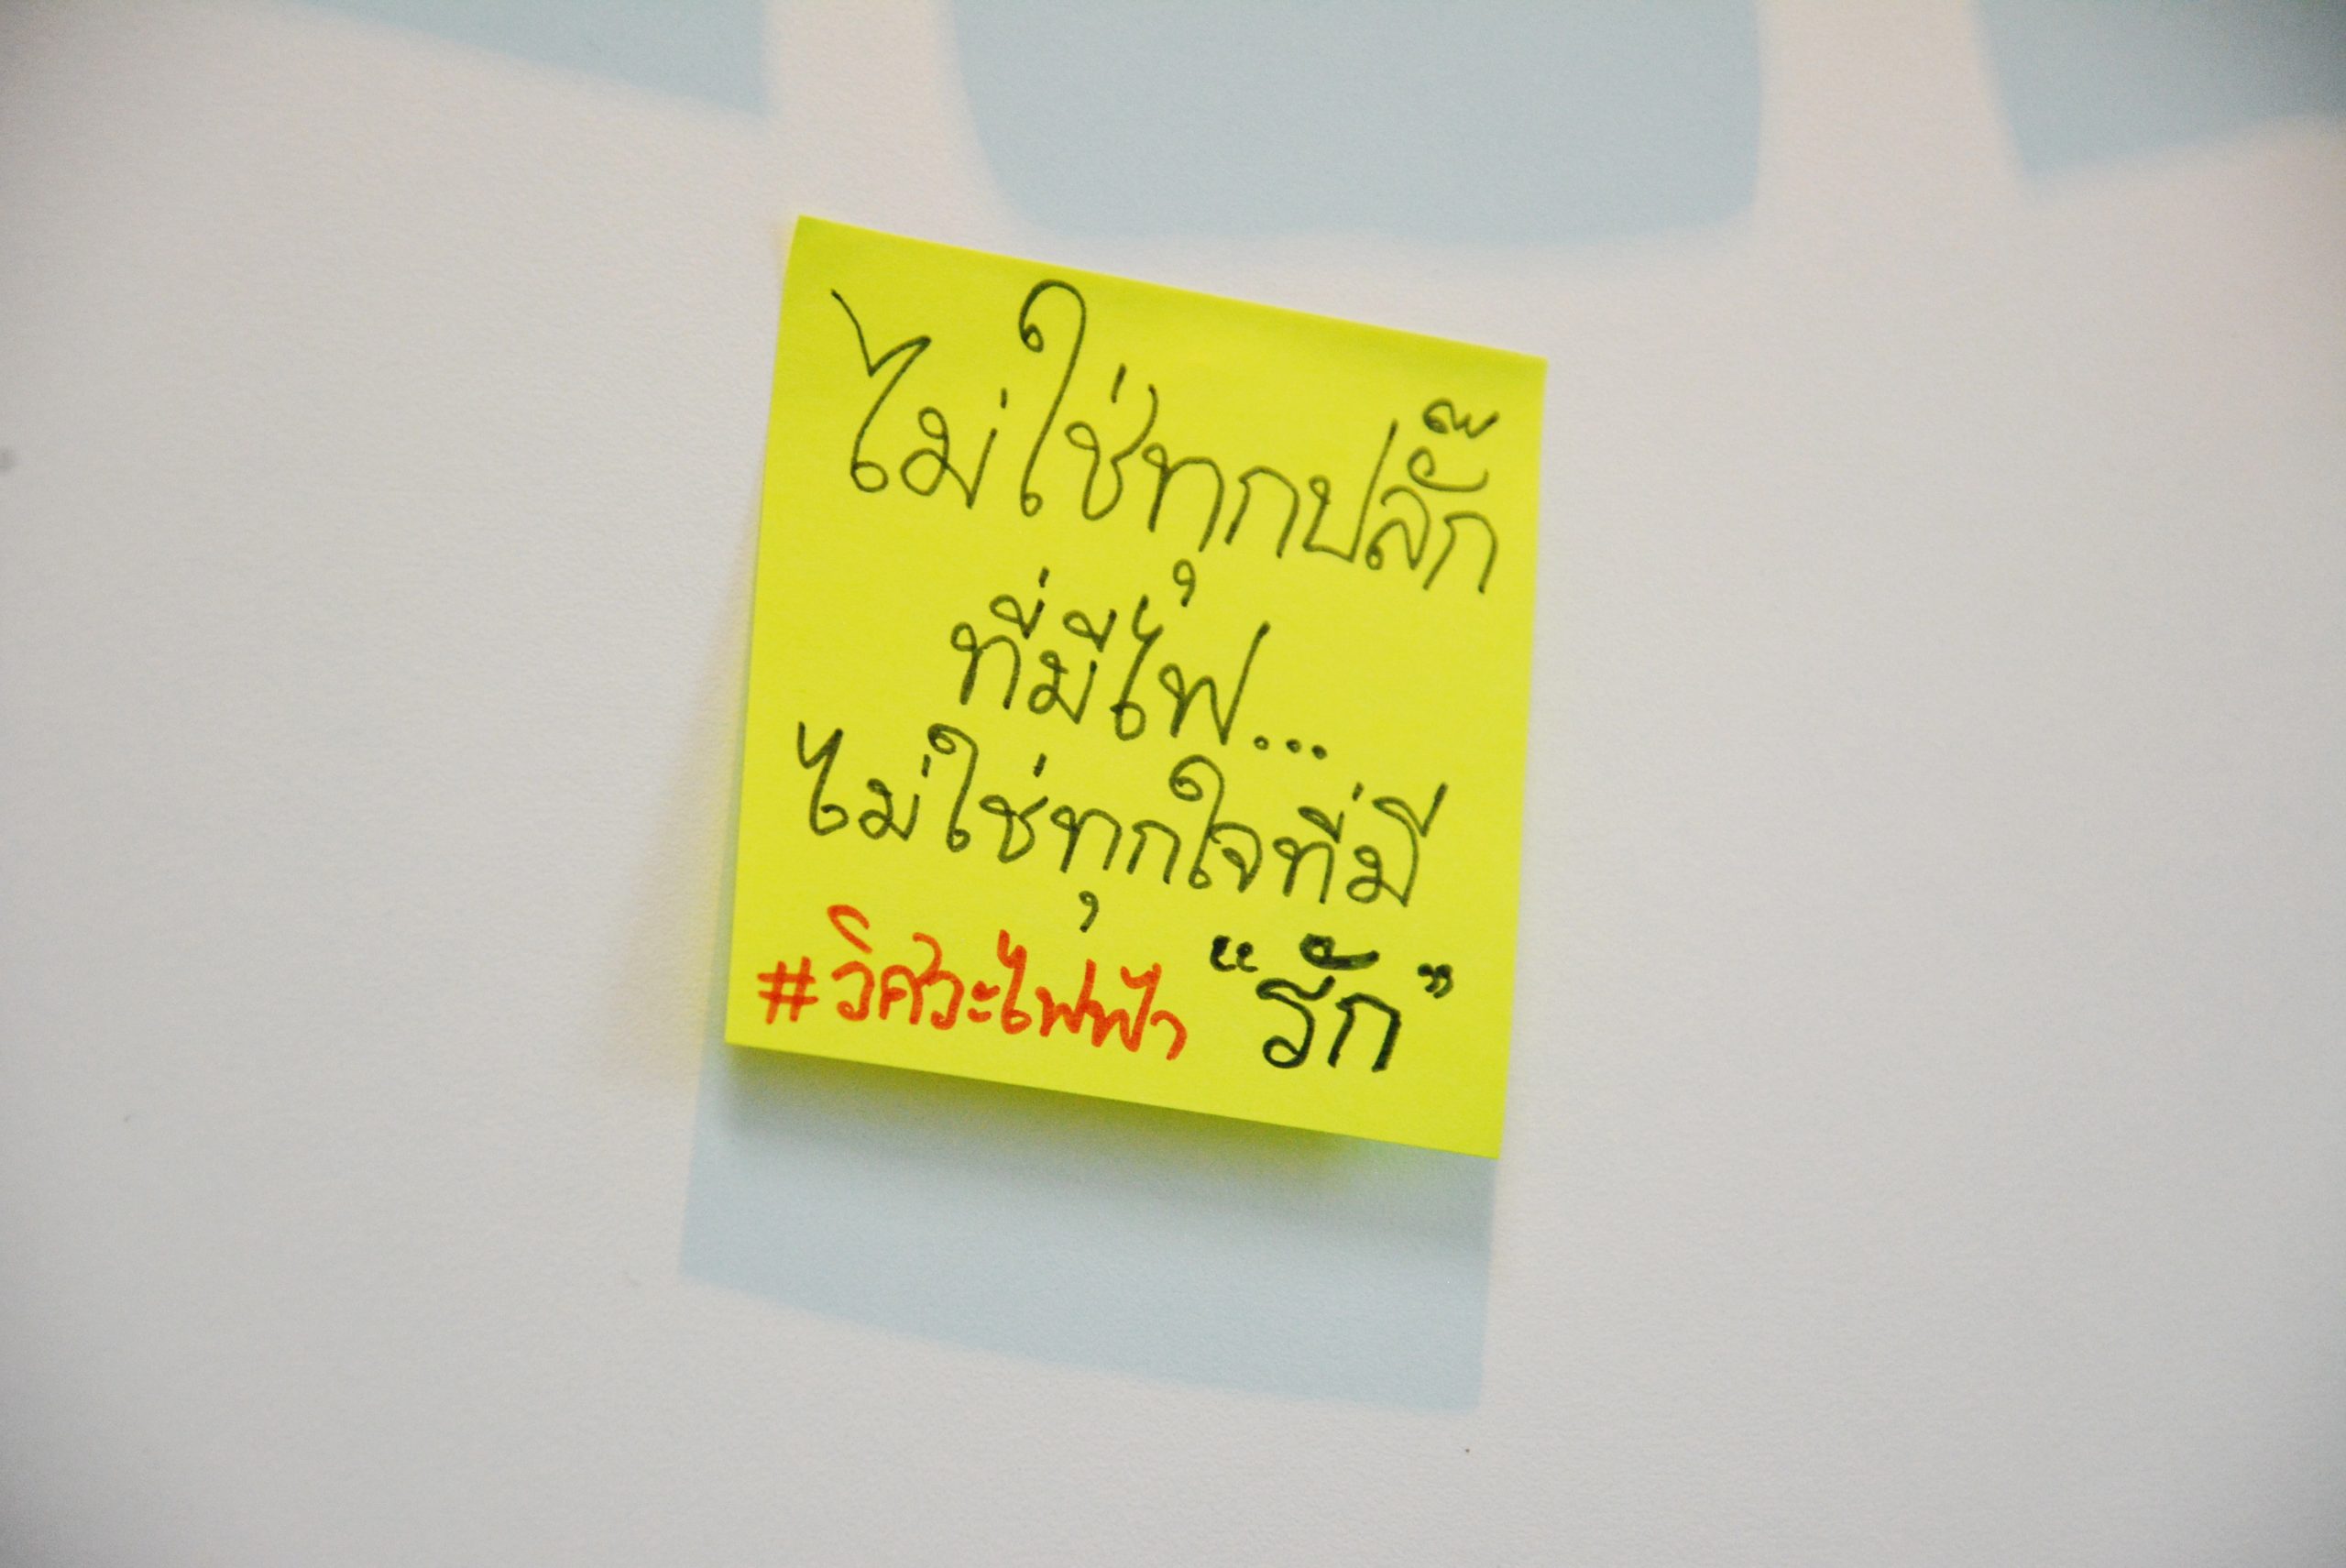 ไม่ใช่ทุกปลั๊ก
ที่มีไฟ...
ไม่ใช่ทุกใจที่มี
"รัก"
#วิศวะไฟฟ้า